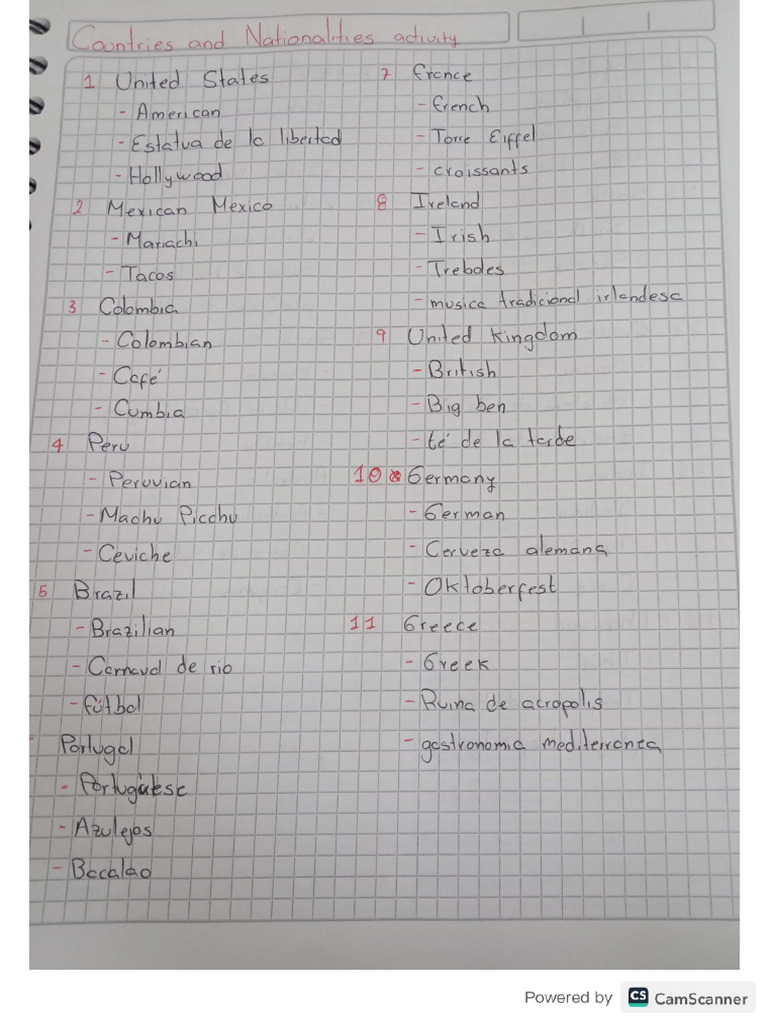 Countries and Nationalities activity
1 United States
- American
- Estatua de la libertad
- Hollywood
2 Mexican Mexico
- Mariachi
- Tacos
3 Colombia
- Colombian
- Café
- Cumbia
4 Peru
- Peruvian
- Machu Picchu
- Ceviche
5 Brazil
- Brazilian
- Carnaval de rio
- fútbol
Portugal
- Portuguese
- Azulejos
- Bacalao
7 France
- French
- Torre Eiffel
- croissants
8 Ireland
- Irish
- Trebdes
- musica tradicional irlandesa
9 United Kingdom
- British
- Big ben
- té de la tarde
10 Germany
- German
- Cerveza alemana
- Oktoberfest
11 Greece
- Greek
- Ruina de acropolis
- gastronomia mediterranea
Powered by CS CamScanner